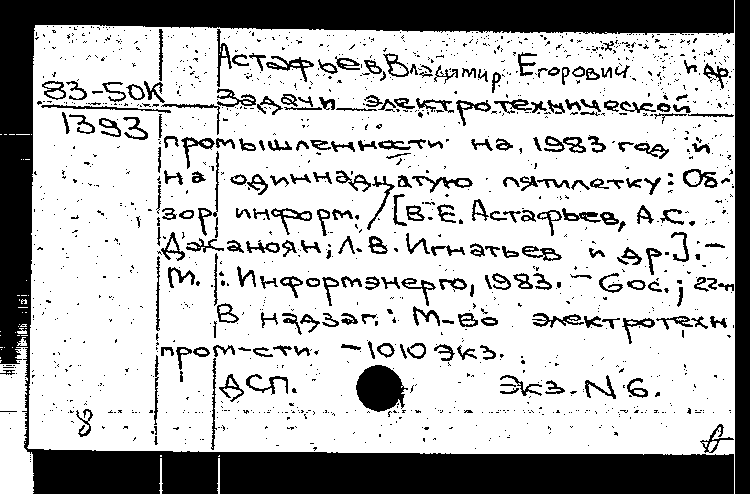 Астафьев, Владимир Егорович и др.
83-50К Задачи электротехнической
1393 промышленности на 1983 год и
на одиннадцатую пятилетку: Об-
зор. информ. / [В.Е. Астафьев, А.С.
Джаноян, Л.В. Игнатьев и др.]. -
М. : Информэнерго, 1983. - 60с.; 22
В надзаг.: М-во электротехн.
пром-сти. - 1010 экз.
ДСП. Экз. N 6.
8